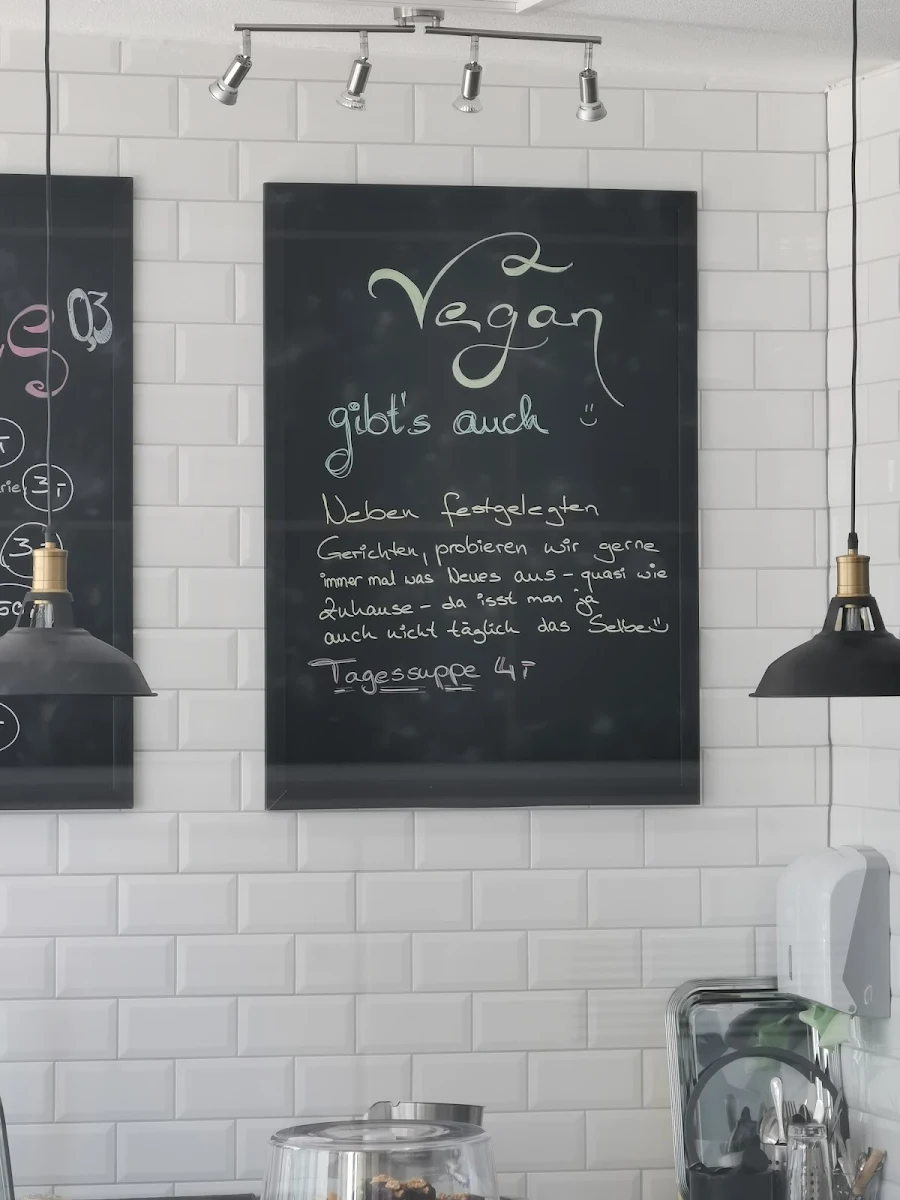 0,3
3,-
3,-
Vegan
gibt's auch :)
Neben festgelegten
Gerichten, probieren wir gerne
immer mal was Neues aus - quasi wie
Zuhause - da isst man ja
auch nicht täglich das Selbe :)
Tagessuppe 4,-